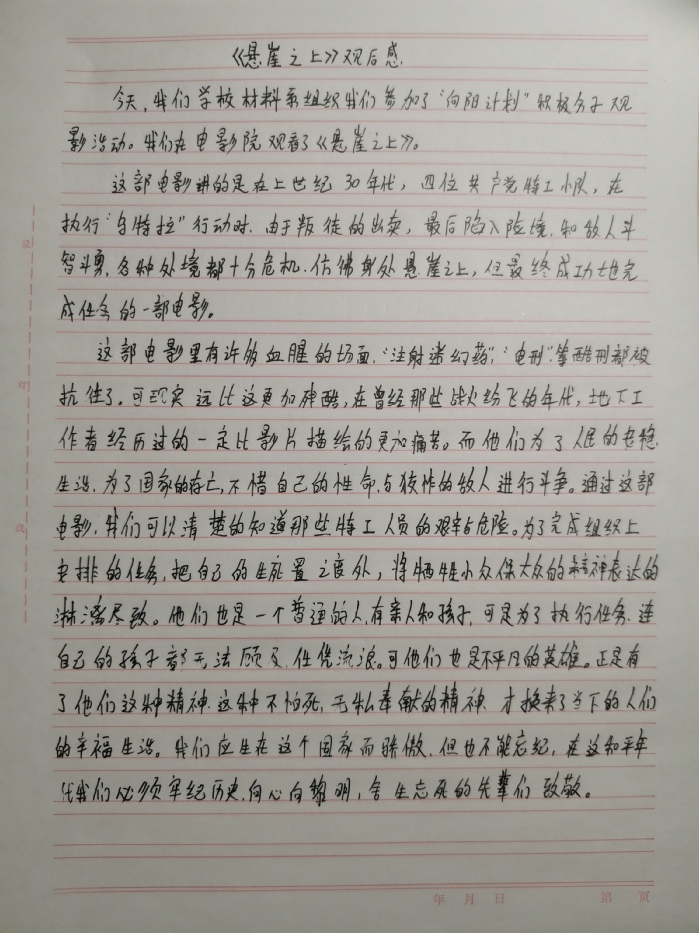 《悬崖之上》观后感
今天,我们学校材料系组织我们参加了“向阳计划”积极分子观
影活动。我们在电影院观看了《悬崖之上》。
这部电影讲的是在上世纪30年代,四位共产党特工小队,在
执行“乌特拉”行动时.由于叛徒的出卖,最后陷入险境.和敌人斗
智斗勇,各种处境都十分危机.仿佛身处悬崖之上,但最终成功地完
成任务的一部电影。
这部电影里有许多血腥的场面.“注射迷幻药”,“电刑”等酷刑都被
抗住了.可现实远比这更加残酷,在曾经那些战火纷飞的年代,地下工
作者经历过的一定比影片描绘的更加痛苦。而他们为了人民的安稳
生活.为了国家的存亡,不惜自己的性命.与狡诈的敌人进行斗争。通过这部
电影,我们可以清楚的知道那些特工人员的艰辛与危险。为了完成组织上
安排的任务,把自己的生死置之度外,将牺牲小众保大众的精神表达的
淋漓尽致。他们也是一个普通的人,有亲人和孩子,可是为了执行任务.连
自己的孩子都无法顾及.任凭流浪。可他们也是不平凡的英雄。正是有
了他们这种精神.这种不怕死,无私奉献的精神.才换来了当下的人们
的幸福生活。我们应生在这个国家而骄傲.但也不能忘纪,在这和平年
代我们必须牢纪历史,向心向黎明,舍生忘死的先辈们致敬。
年 月 日 第 页